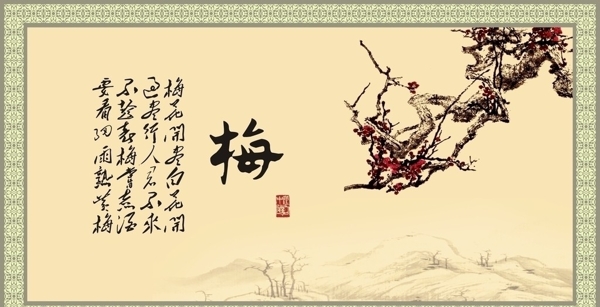 梅
梅花開盡白花開
過盡行人君不來
不趁青梅嘗煮酒
要看細雨熟黃梅